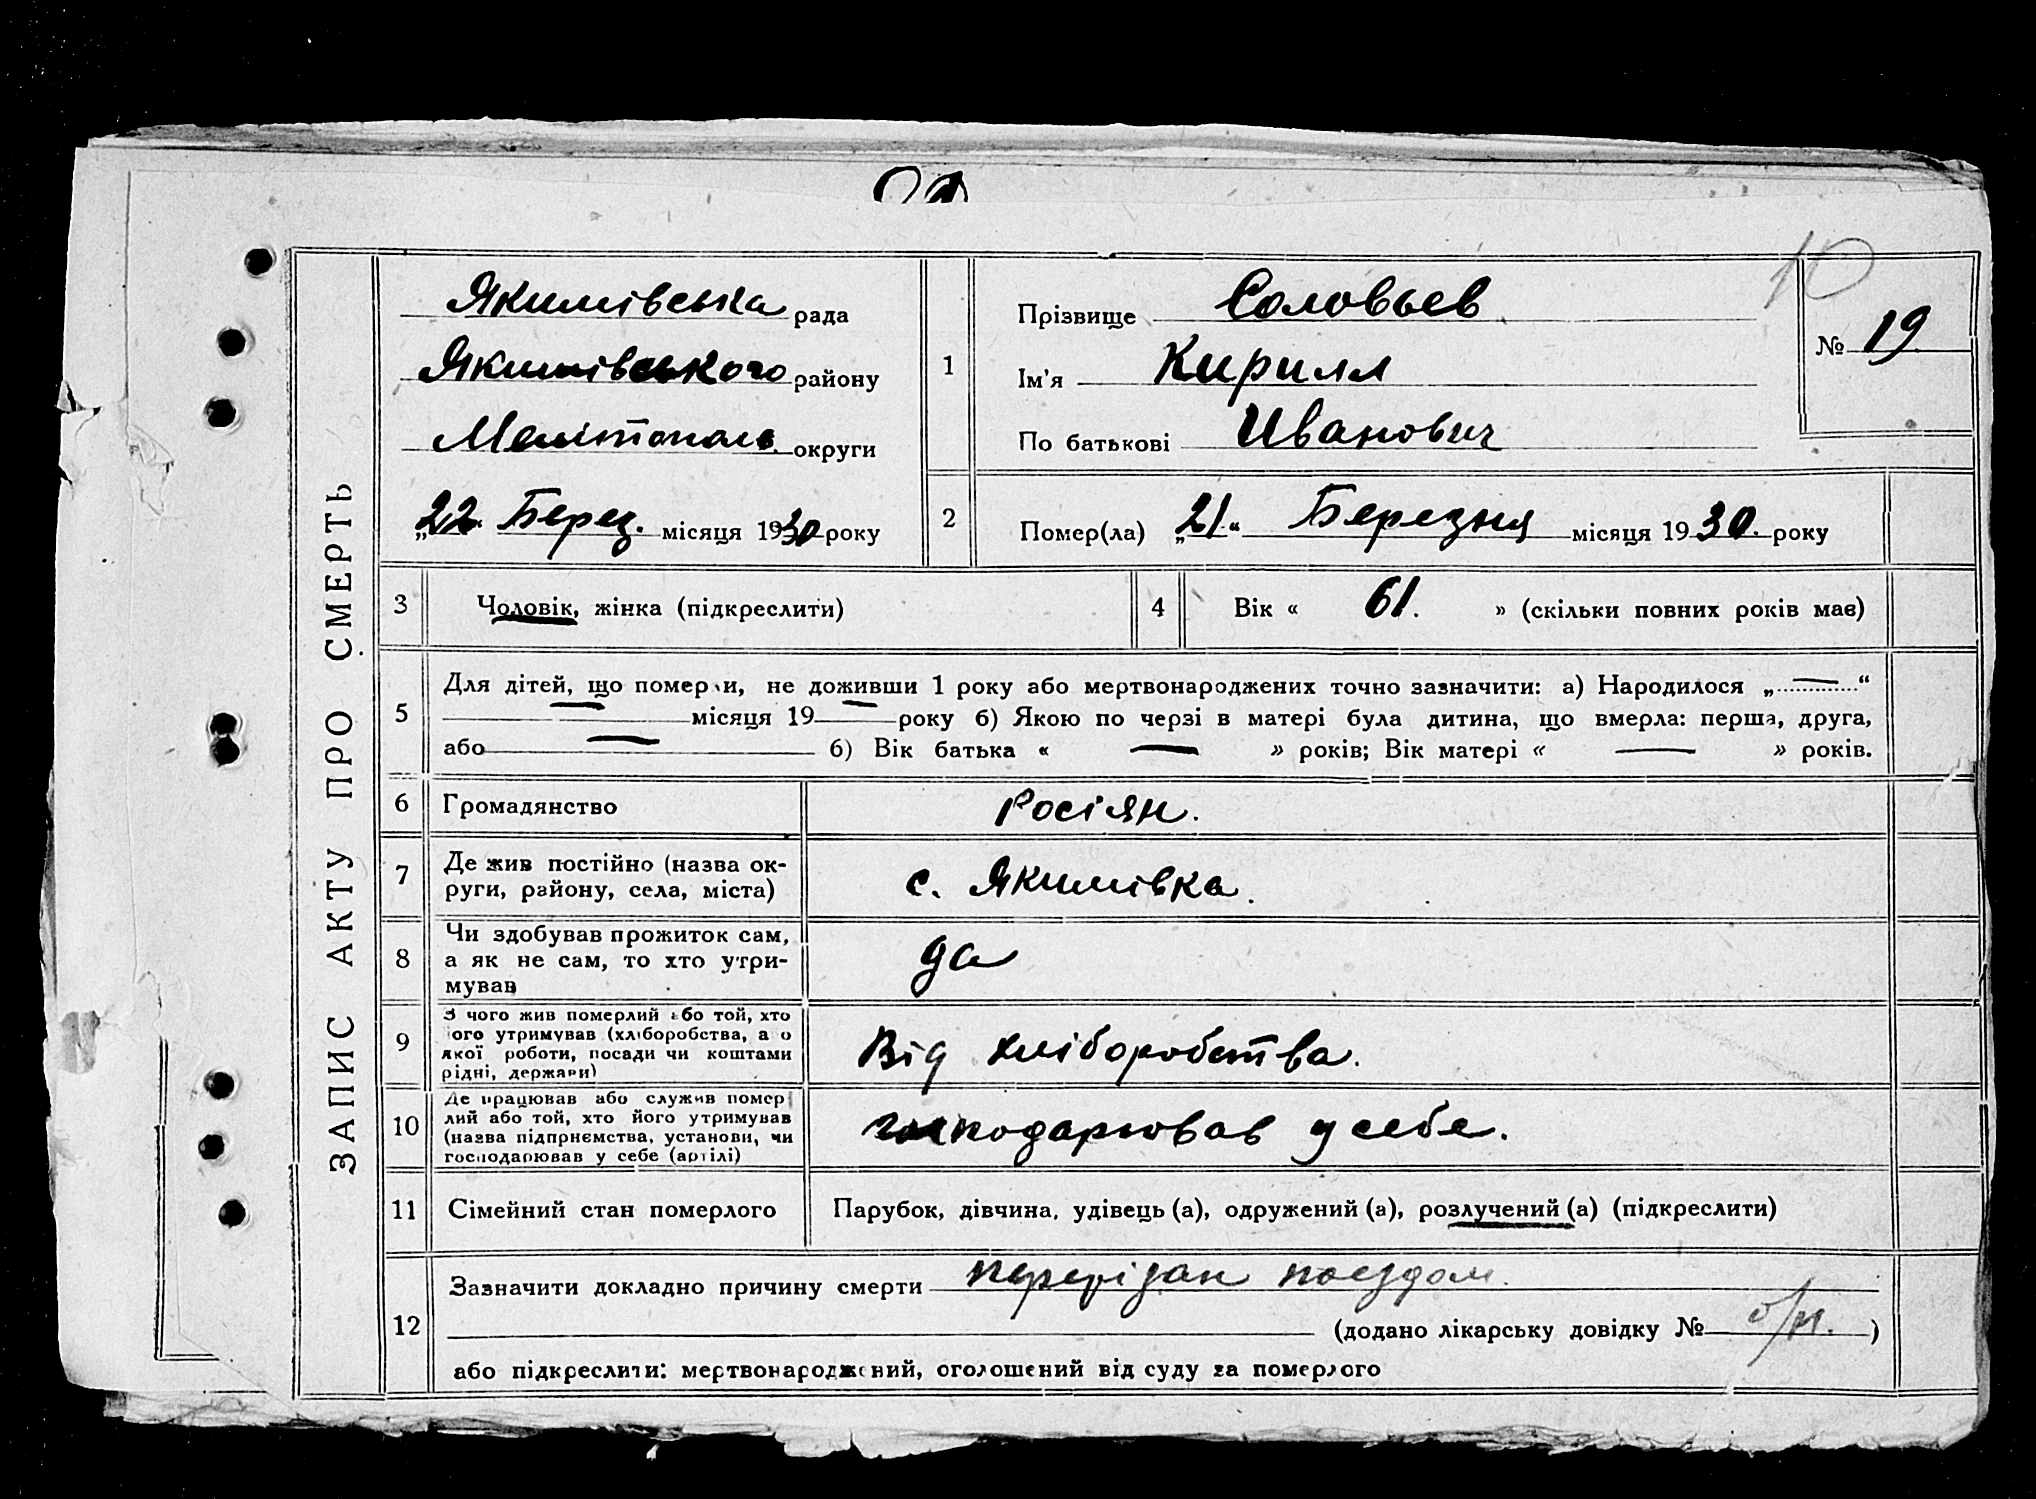 10
ЗАПИС АКТУ ПРО СМЕРТЬ
Якимівська рада
Якимівського району
Мелітополь. округи
„22. Берез. місяця 1930 року
1
Прізвище Соловьев
Ім'я Кирилл
По батькові Иванович
№ 19
2
Помер(ла) „21“ Березня місяця 1930. року
3
Чоловік, жінка (підкреслити)
4
Вік « 61. » (скільки повних років має)
5
Для дітей, що померли, не доживши 1 року або мертвонароджених точно зазначити: а) Народилося „ — “
— місяця 19 — року б) Якою по черзі в матері була дитина, що вмерла: перша, друга,
або — б) Вік батька « — » років; Вік матері « — » років.
6
Громадянство
Росіян.
7
Де жив постійно (назва ок-
руги, району, села, міста)
с. Якимівка.
8
Чи здобував прожиток сам,
а як не сам, то хто утри-
мував
да
9
З чого жив померлий або той, хто
його утримував (хліборобства, а о
якої роботи, посади чи коштами
рідні, держави)
Від хліборобства.
10
Де працював або служив помер
лий або той, хто його утримував
(назва підприємства, установи, чи
господарював у себе (артілі)
господарював у себе.
11
Сімейний стан померлого
Парубок, дівчина, удівець (а), одружений (а), розлучений (а) (підкреслити)
12
Зазначити докладно причину смерти перерізан поездом.
(додано лікарську довідку № б/н. )
або підкреслити: мертвонароджений, оголошений від суду за померлого